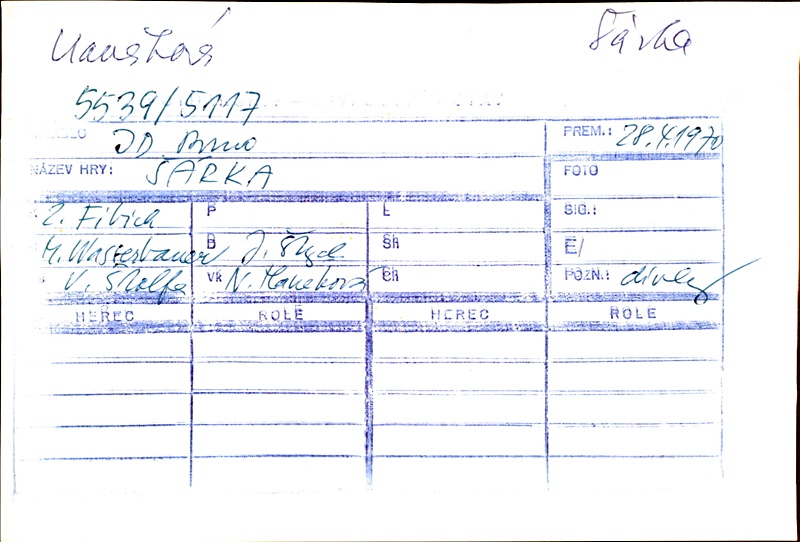 Hanáková Šárka
5539/5117
JD Brno PREM.: 28.4.1970
NÁZEV HRY: ŠÁRKA FOTO
Z. Fibich P L SIG.:
M. Wasserbauer B J. Štyd Sh E/
V. Štolfa Vk N. Hanáková Ch POZN.:
HEREC ROLE HEREC ROLE